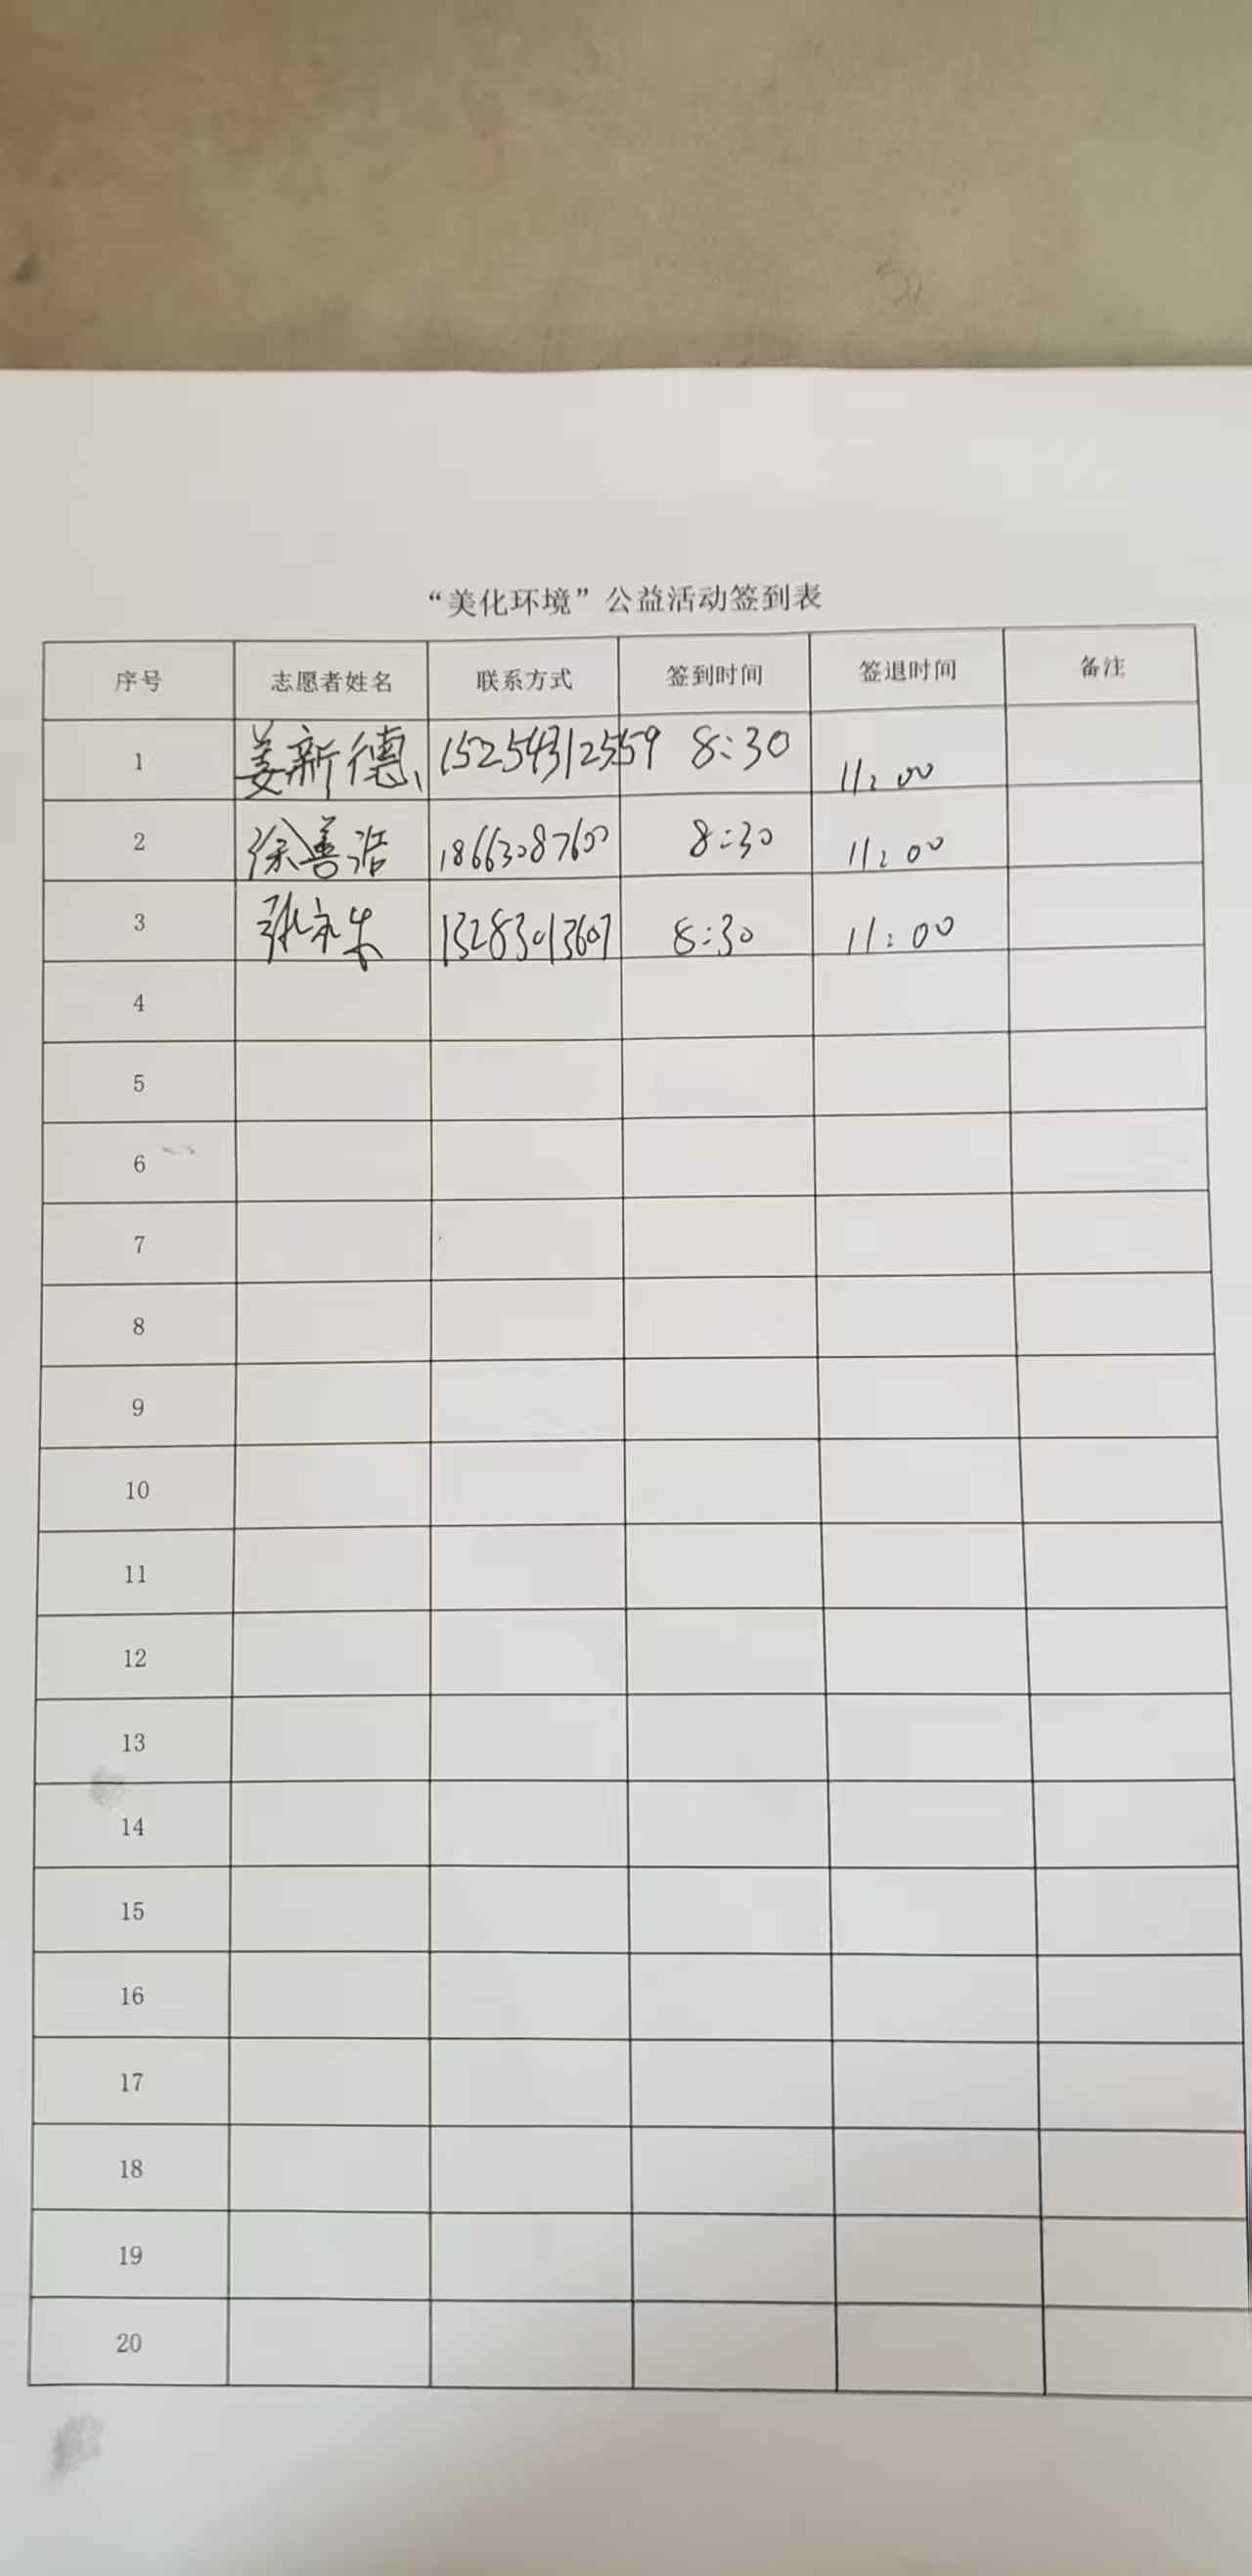 “美化环境”公益活动签到表
序号 志愿者姓名 联系方式 签到时间 签退时间 备注
1 姜新德 15254312559 8:30 11:00
2 徐善浩 18663087600 8:30 11:00
3 张 13283013607 8:30 11:00
4
5
6
7
8
9
10
11
12
13
14
15
16
17
18
19
20